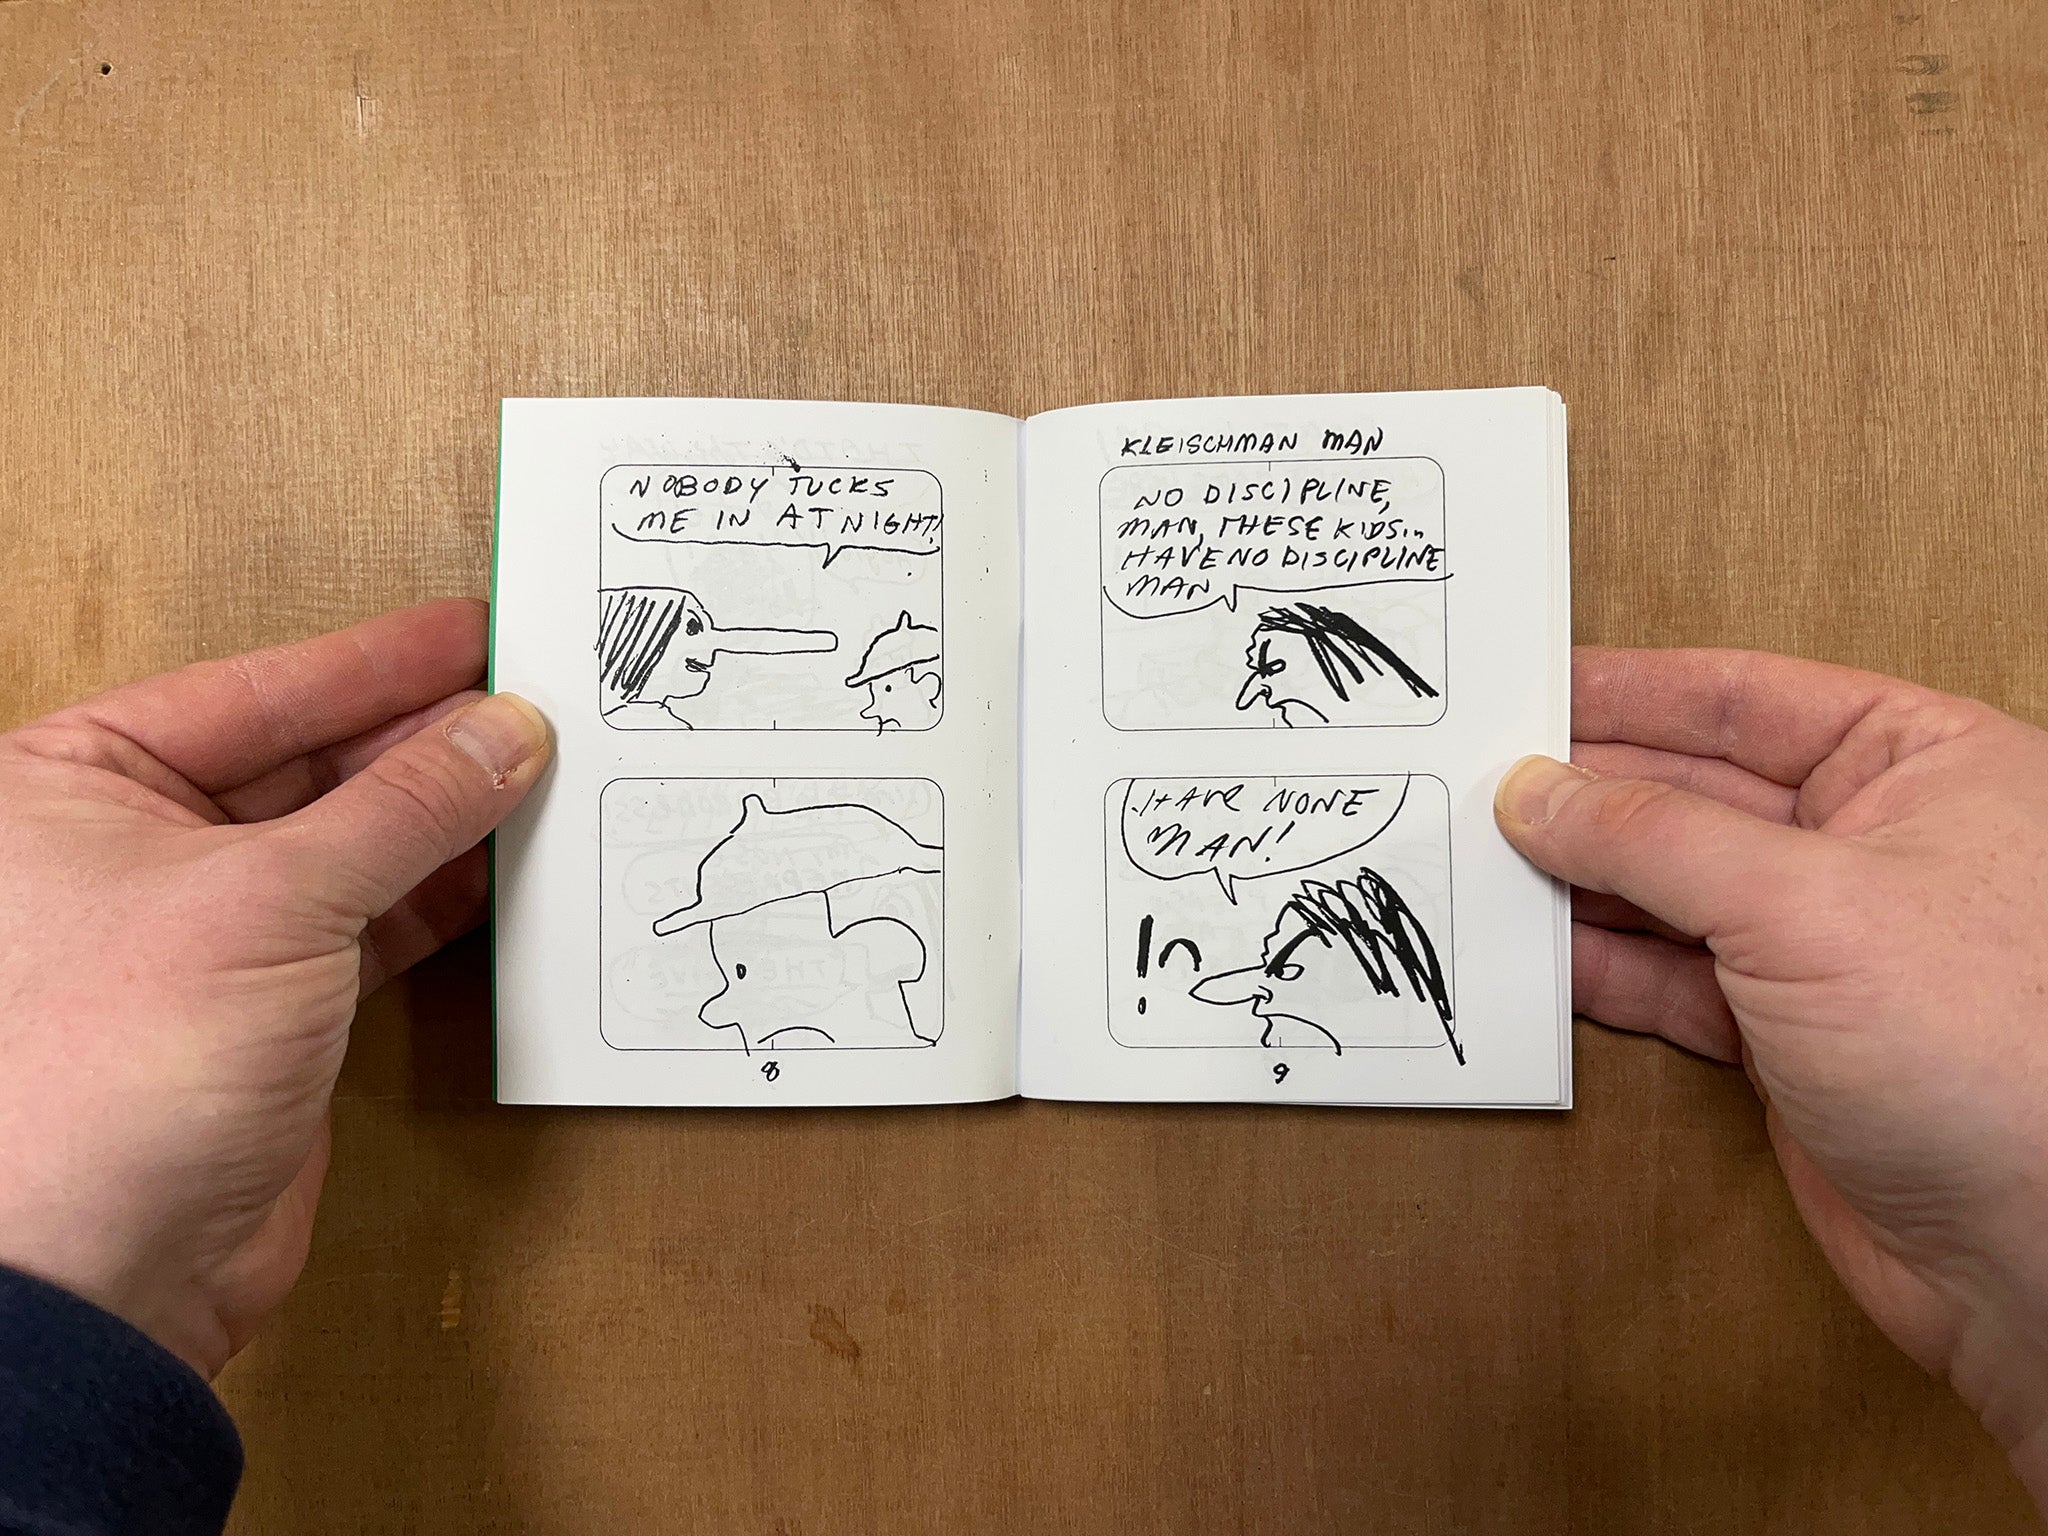 NOBODY TUCKS
ME IN AT NIGHT!
8
KLEISCHMAN MAN
NO DISCIPLINE,
MAN, THESE KIDS...
HAVE NO DISCIPLINE
MAN
HAVE NONE
MAN!
!
9